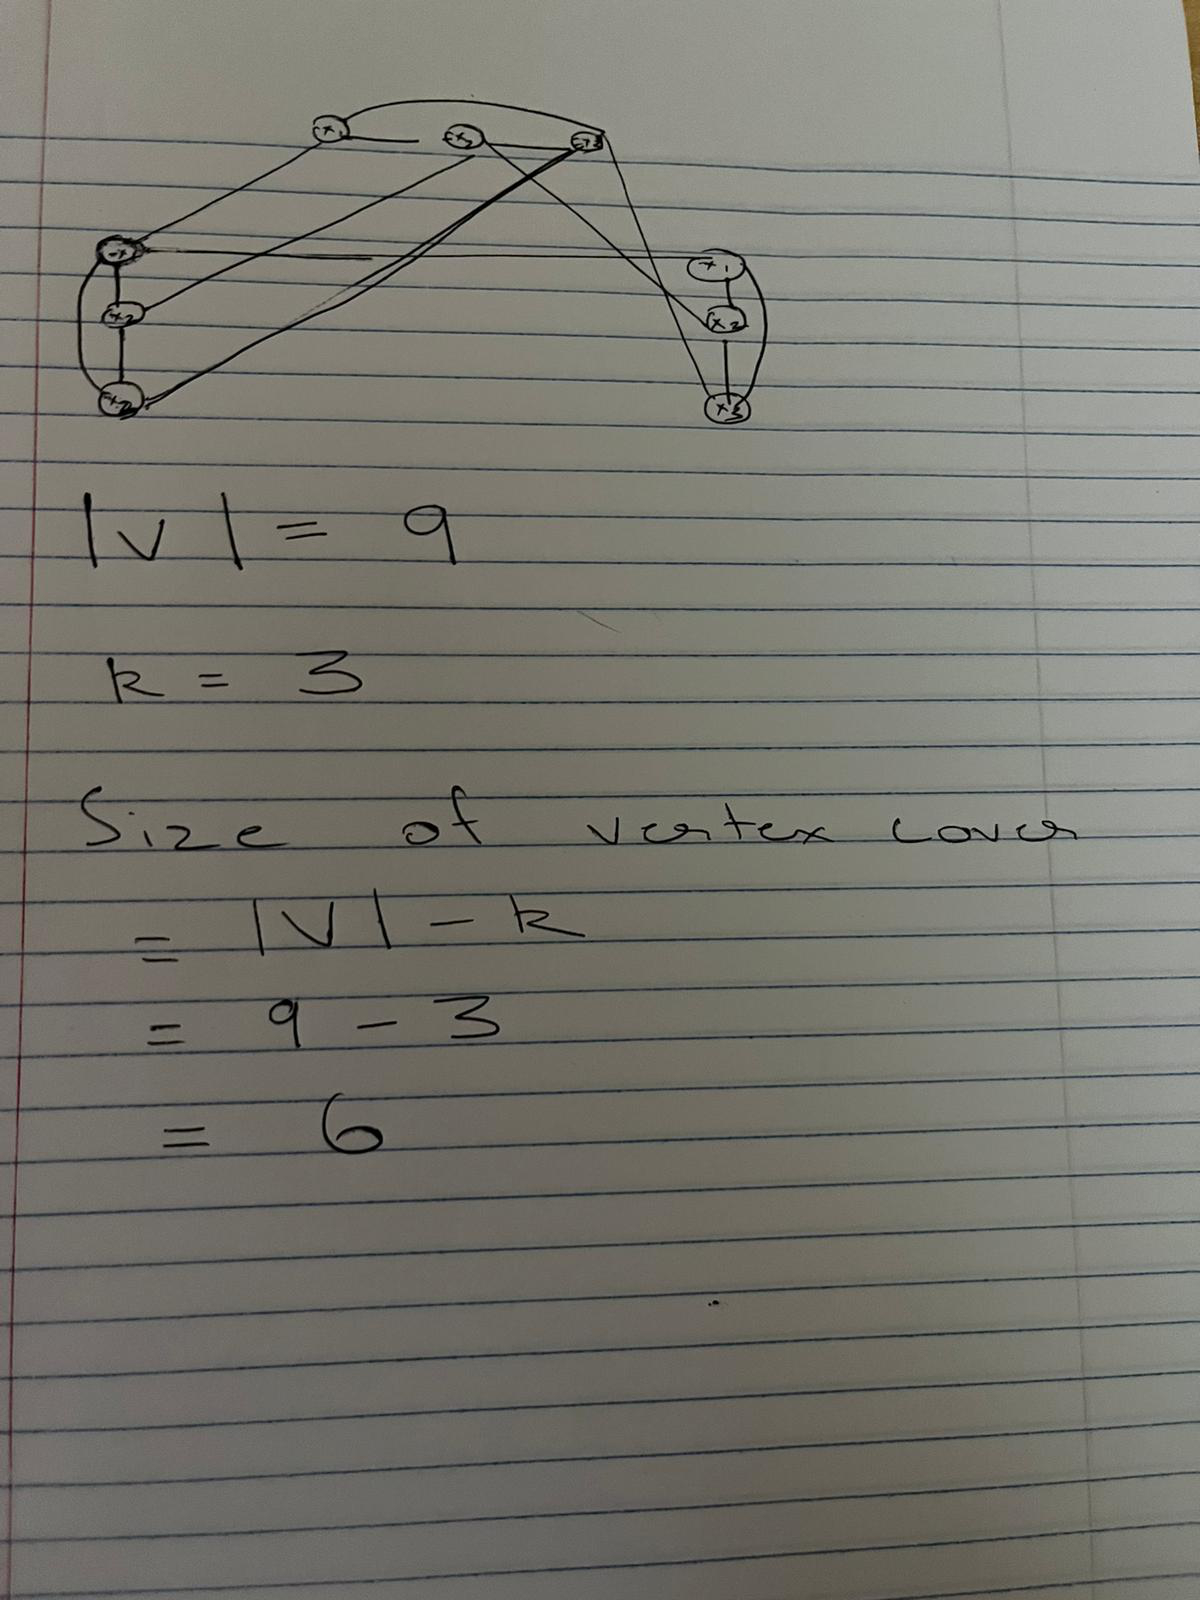 x₁ x₂
¬x₁ x₁
x₂ x₂
x₃
|v| = 9
k = 3
Size of vertex cover
= |V| - k
= 9 - 3
= 6